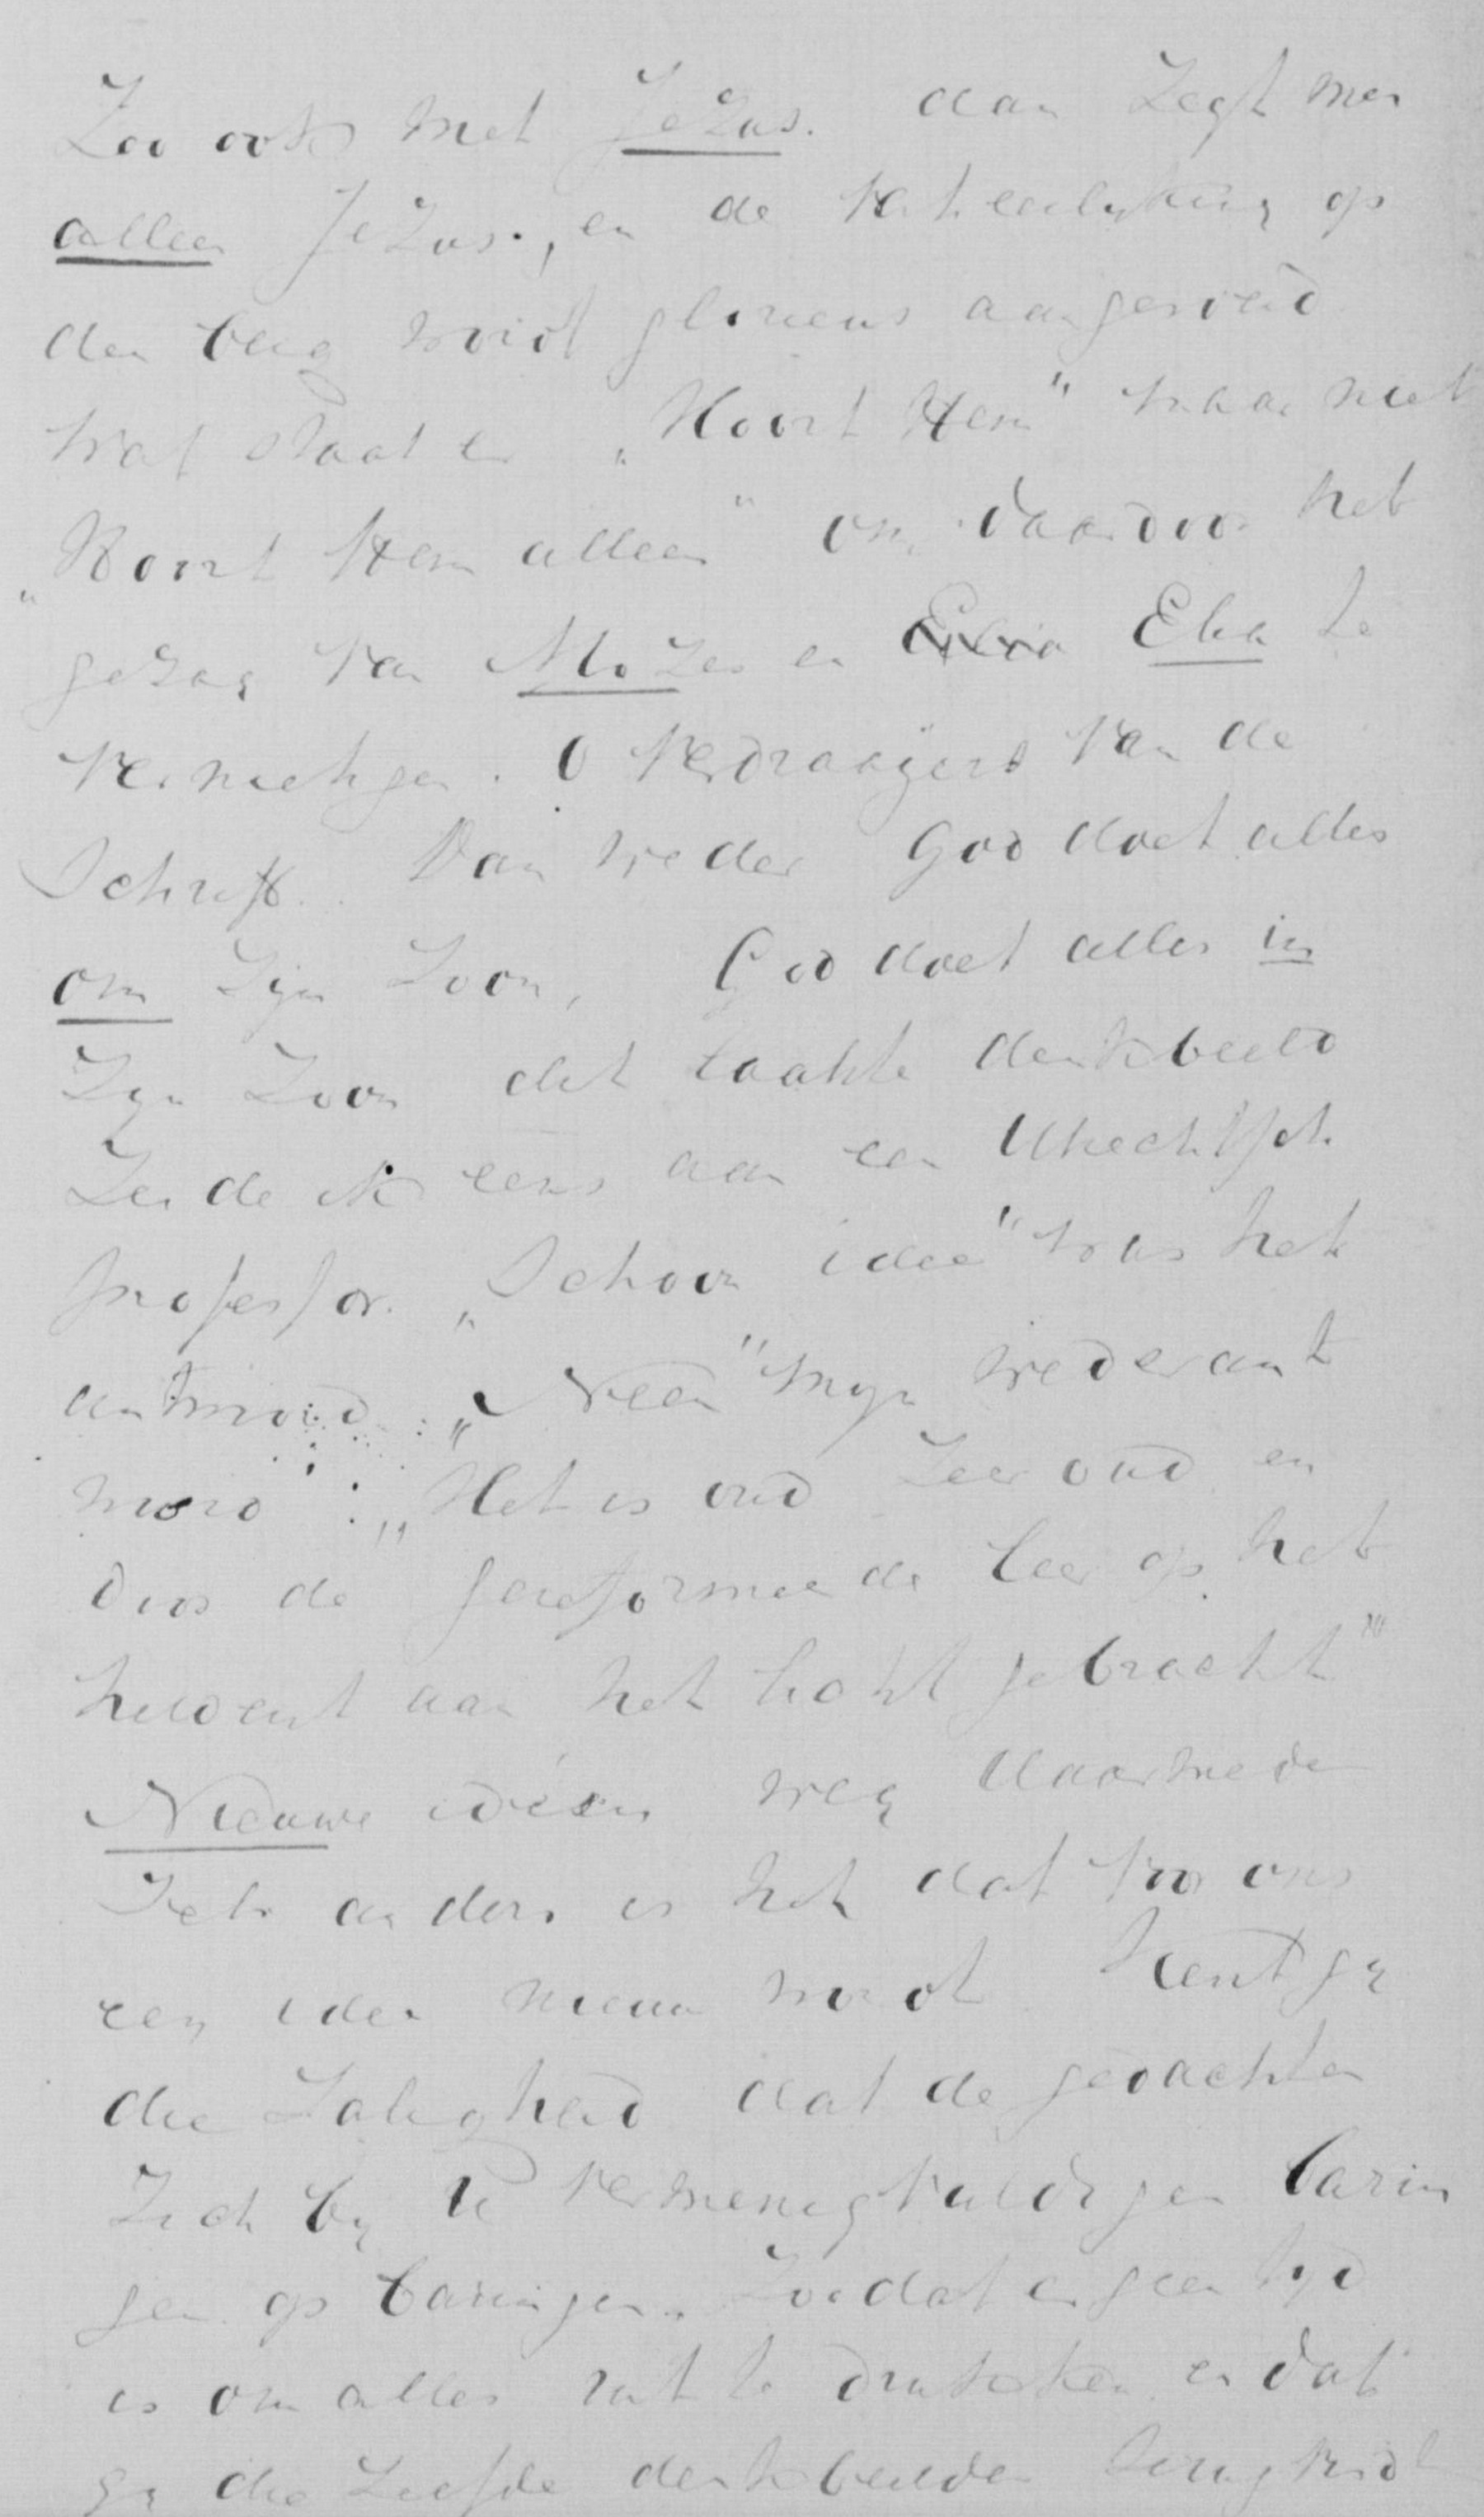 Zoo ook met Jezus. dan zegt men
alleen Jezus., en de verheerlijking op
den berg wordt glorieus aangevoerd
wat staat er „Hoort Hem" maar niet
„Hoort Hem alleen" om daardoor het
gezag van Mozes en Elia te
vernietigen. O verdraaijers van de
Schrift. Dan weder God doet alles
om Zijn Zoon, God doet alles in
Zijn Zoon dit laatste denkbeeld
Zeide ik eens aan een Utrechtsch
professor. „Schoon idee" was het
antwoord „Neen" mijn wederant
woord : „Het is oud Zeer oud en
door de gereformeerde leer op het
helderst aan het licht gebracht"
Nieuwe ideën weg daarmede
Iets anders is het dat voor ons
een idee nieuw wordt Kent gij
die Zaligheid dat de gedachten
Zich bij U vermenigvuldigen barin
gen op baringen. Zoodat er geen tijd
is om alles uit te drukken en dat
gij die Zelfde denkbeelden terugvindt